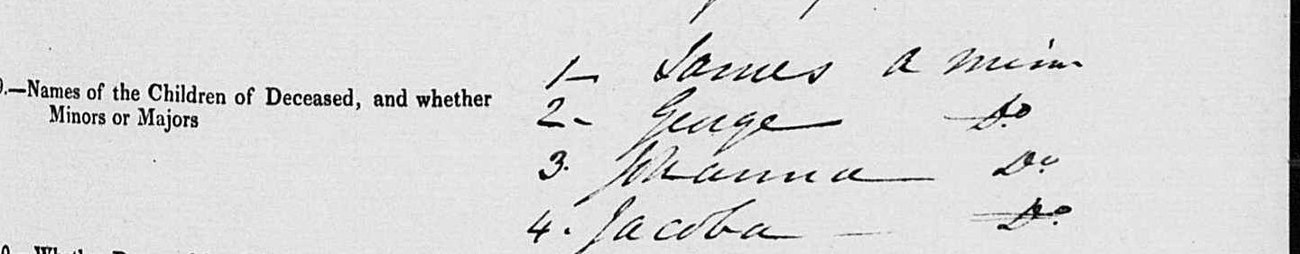 9.—Names of the Children of Deceased, and whether
Minors or Majors
1- James a minor
2- George Do
3. Johanna Do
4. Jacoba Do